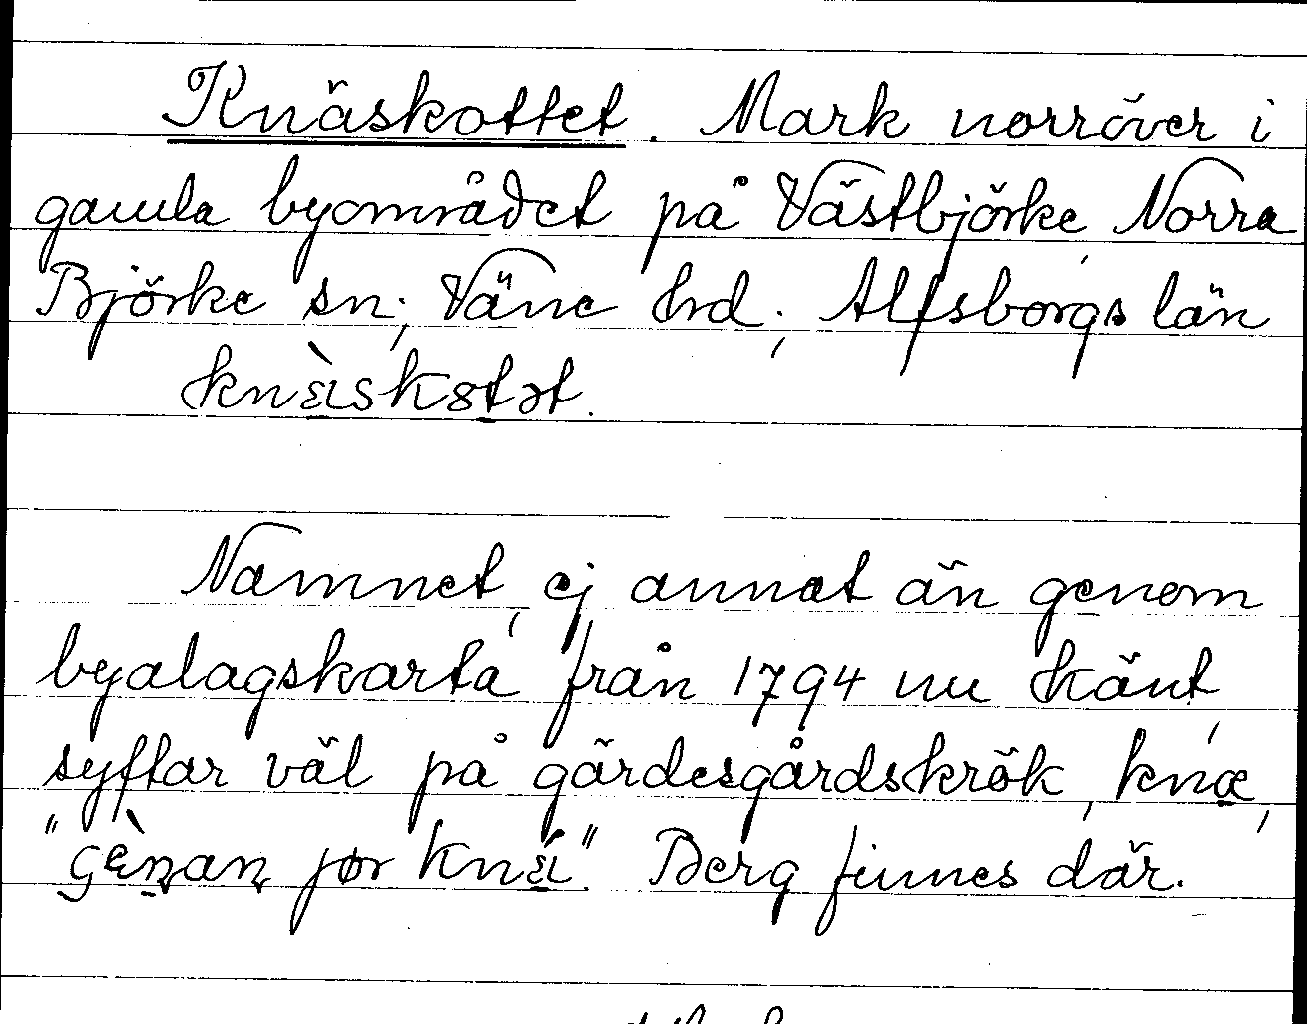 Knäskottet. Mark norröver i
gamla byområdet på Västbjörke, Norra
Björke sn, Väne hrd, Älfsborgs län
knæ̀skɔtət.
Namnet, ej annat än genom
byalagskarta från 1794 nu känt,
syftar väl på gärdesgårdskrök, knæ,
"gæ̀ṇaṇ jør knǽ". Berg finnes där.